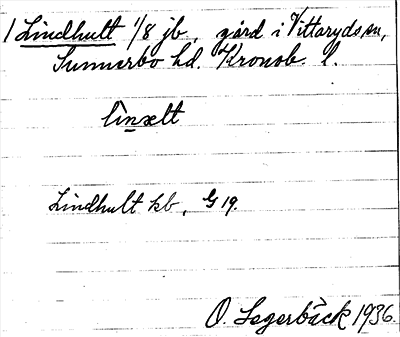 1 Lindhult 1/8 jb, gård i Vittaryds sn,
Sunnerbo hd. Kronob. l.
lìnxlt
Lindhult kb, G 19.
O. Segerbäck 1936.